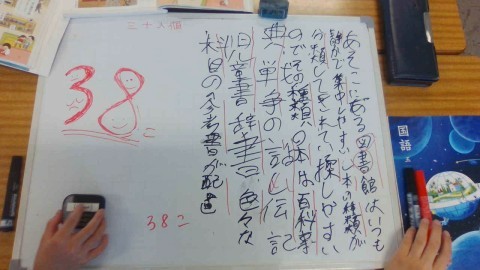 あそこにある図書館はいつも
静かで集中しやすいし本の種類が
分類してきれいで探しやすい
のでその種類の本は百科事
典、戦争の話、伝記
児童書、辞書、色々な
科目の参考書が配
三十八個
38こ
38こ
国語 五